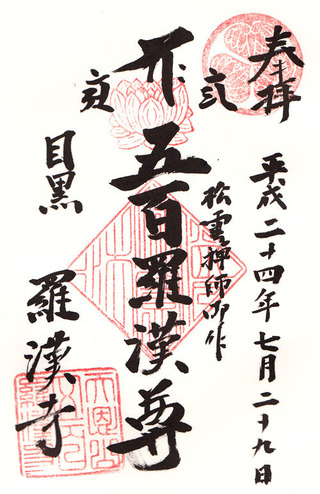 奉拝
平成二十四年七月二十九日
松雲禅師御作
五百羅漢尊
目黒
羅漢寺